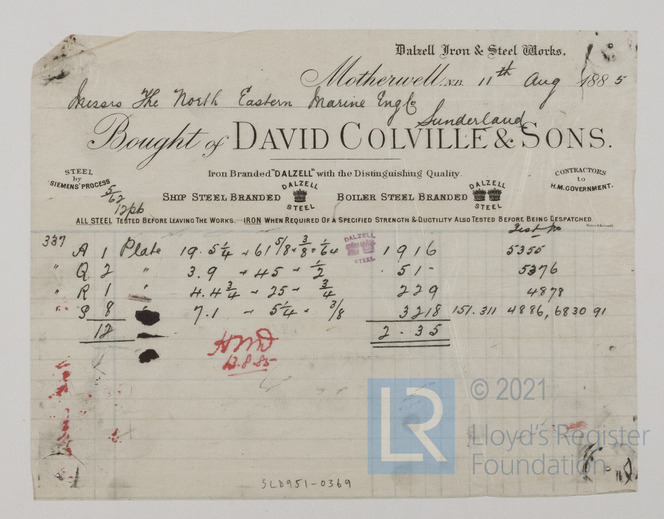 Dalzell Iron & Steel Works.
Motherwell N.B. 11th Aug 1885
Messrs The North Eastern Marine Eng Co
Sunderland
Bought of DAVID COLVILLE & SONS.
Iron Branded "DALZELL" with the Distinguishing Quality.
STEEL by SIEMENS' PROCESS
CONTRACTORS to H.M. GOVERNMENT.
5/62
12pb
SHIP STEEL BRANDED DALZELL STEEL BOILER STEEL BRANDED DALZELL STEEL
ALL STEEL TESTED BEFORE LEAVING THE WORKS. IRON WHEN REQUIRED OF A SPECIFIED STRENGTH & DUCTILITY ALSO TESTED BEFORE BEING DESPATCHED
Test No
337 A 1 Plate 19.5 1/4 - 61 5/8 - 3/8 - 1/64 DALZELL STEEL 1916 5355
" Q 2 " 3.9 - 45 - 1/2 51- 5376
" R 1 " 4.4 3/4 - 25 - 3/4 229 4878
" P 8 " 7.1 - 5 1/4 - 3/8 3218 151.311 4886, 6830 91
12 2.35
12.8.85
LR © 2021
Lloyd's Register
Foundation
SLD951-0369